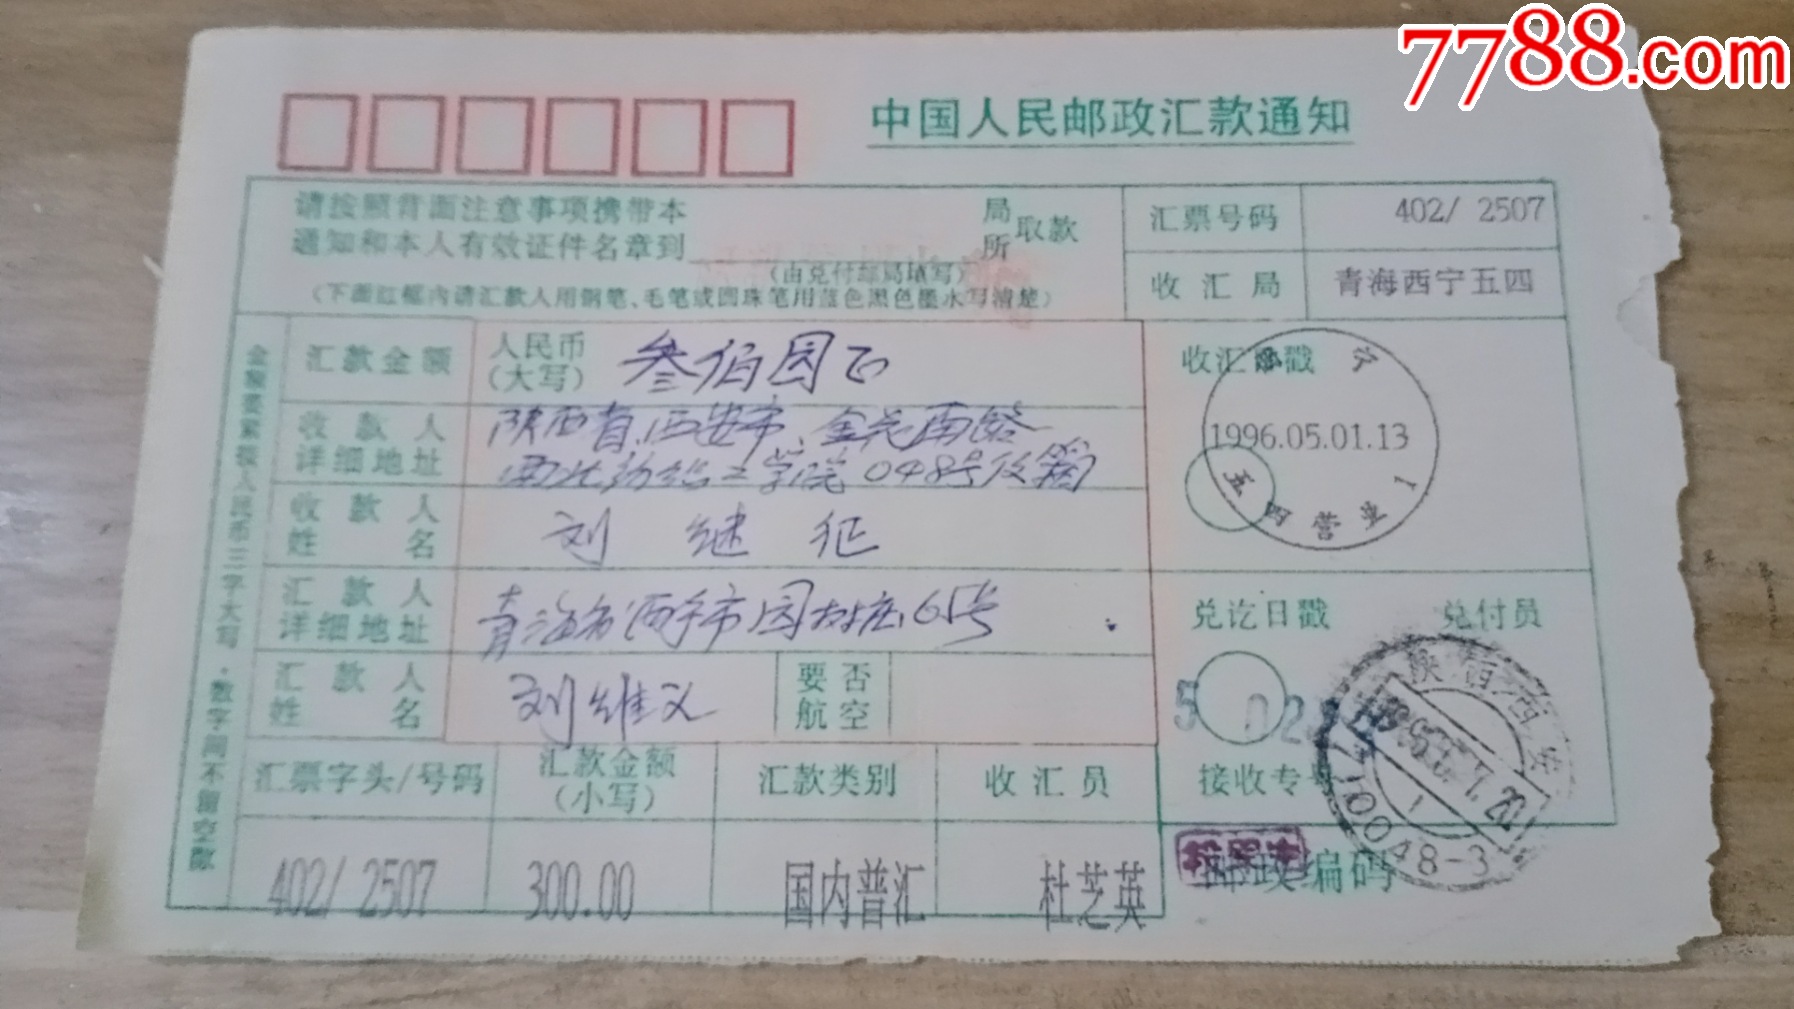 7788.com
中国人民邮政汇款通知
请按照背面注意事项携带本
通知和本人有效证件名章到
局
所
取款
(由兑付邮局填写)
(下面红框内请汇款人用钢笔、毛笔或圆珠笔用蓝色黑色墨水写清楚)
汇票号码 402/ 2507
收汇局 青海西宁五四
金额要紧接人民币三字大写·数字间不留空隙
汇款金额 人民币(大写) 叁佰圆正
收款人详细地址 陕西省西安市金花南路
西北纺织工学院048号信箱
收款人姓名 刘继征
汇款人详细地址 青海省西宁市园树庄65号
汇款人姓名 刘维义
要否航空
收汇日戳
西宁
1996.05.01.13
五四营业1
兑讫日戳 兑付员
陕西西安
710048-3
接收专号
邮政编码
汇票字头/号码 汇款金额(小写) 汇款类别 收汇员
402/ 2507 300.00 国内普汇 杜芝英